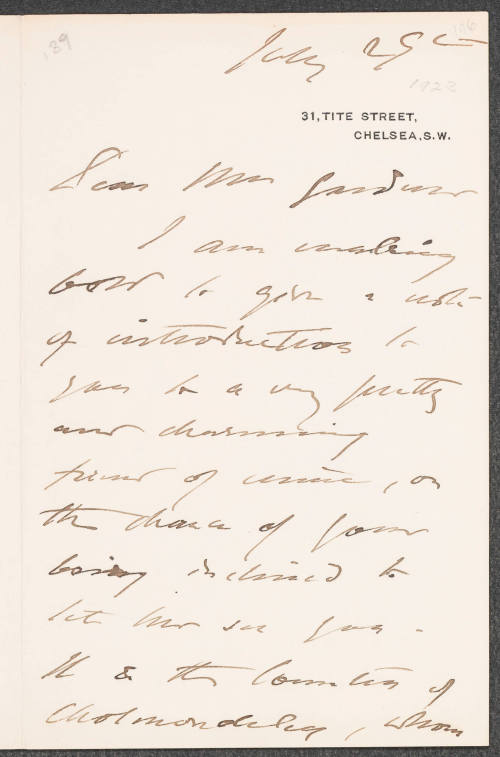 139
186
July 29th
1923
31, TITE STREET,
CHELSEA, S.W.
Dear Mrs Gardner
I am making
bold to give a note
of introduction to
you to a very pretty
and charming
friend of mine, on
the chance of your
being inclined to
let her see you -
It is the Countess of
Cholmondeley, whom